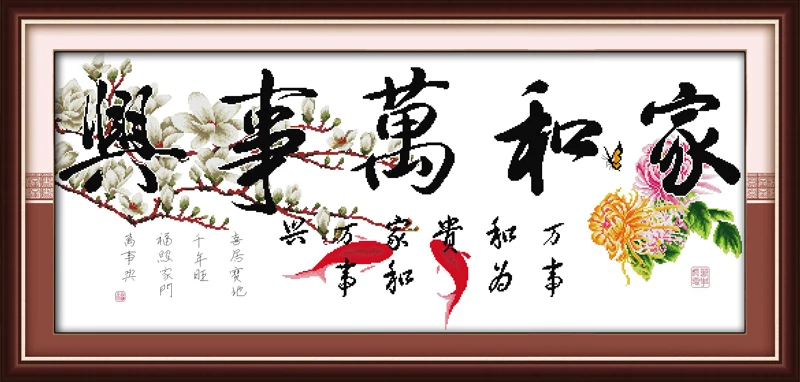 家和萬事興
万事
和为
贵
家和
万事
兴
喜居寳地
千年旺
福照家門
萬事興